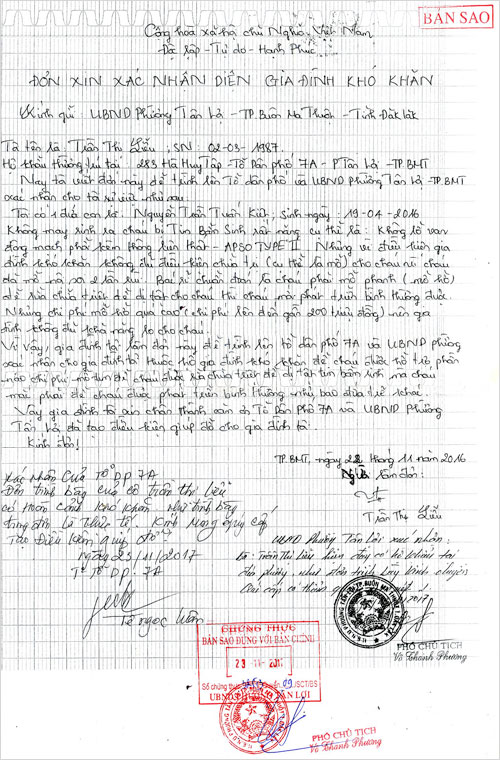 BẢN SAO
Cộng hòa xã hội chủ Nghĩa Việt Nam
Độc lập - Tự do - Hạnh Phúc
ĐƠN XIN XÁC NHẬN DIỆN GIA ĐÌNH KHÓ KHĂN
Kính gửi: UBND Phường Tân Lợi - TP. Buôn Ma Thuột - Tỉnh Đăk Lăk
Tôi tên là Trần Thị Liễu, SN: 02-03-1987.
Hộ khẩu thường trú tại: 283 Hà Huy Tập - Tổ Dân phố 7A - P Tân Lợi - TP. BMT
Nay tôi viết đơn này để trình lên Tổ dân phố và UBND phường Tân Lợi - TP. BMT
xác nhận cho tôi sự việc như sau:
Tôi có 1 đứa con là: Nguyễn Trần Tuấn Kiệt; Sinh ngày: 19-04-2016
Không may sinh ra cháu bị Tim Bẩm Sinh rất nặng cụ thể là: Không lỗ van
động mạch phổi kèm thông liên thất - APSO TYPE II. Nhưng vì điều kiện gia
đình khó khăn không đủ điều kiện chữa trị (cụ thể là mổ) cho cháu nó cháu
đã mổ nội 2 lần rồi. Bác sĩ chuẩn đoán là cháu phải mổ phanh (mổ hở)
để sửa chữa triệt để dị tật cho cháu thì cháu mới phát triển bình thường được.
Nhưng chi phí mổ hở quá cao (chi phí lên đến gần 200 triệu đồng) nên gia
đình không đủ khả năng lo cho cháu.
Vì vậy, gia đình tôi làm đơn này để trình lên tổ dân phố 7A và UBND phường
xác nhận cho gia đình tôi thuộc hộ gia đình khó khăn để cháu được hỗ trợ phần
nào chi phí mổ tim để cháu được sửa chữa triệt để dị tật tim bẩm sinh mà cháu
mắc phải để cháu được phát triển bình thường như bao đứa trẻ khác.
Vậy gia đình tôi xin chân thành cảm ơn Tổ Dân Phố 7A và UBND Phường
Tân Lợi đã tạo điều kiện giúp đỡ cho gia đình tôi.
Kính đơn!
TP. BMT, ngày 22 tháng 11 năm 2016
Người làm đơn:
Trần Thị Liễu
Xác nhận của Tổ DP 7A
Đơn trình bày của cô trần thị Liễu
có hoàn cảnh khó khăn như trình bày
trong đơn là thực tế. Kính mong các cấp
Tạo Điều kiện giúp đỡ
Ngày 23/11/2017
T. Tổ DP. 7A
Lê Ngọc
UBND Phường Tân Lợi xác nhận:
Bà: Trần Thị Liễu hiện đây có hộ khẩu tại
địa phương, như đơn trình bày
PHÓ CHỦ TỊCH
Võ Thành Phương
CHỨNG THỰC
BẢN SAO ĐÚNG VỚI BẢN CHÍNH
23 -11- 201
Số chứng thực quyển 09 /SCT/BS
UBND PHƯỜNG TÂN LỢI
PHÓ CHỦ TỊCH
Võ Thành Phương